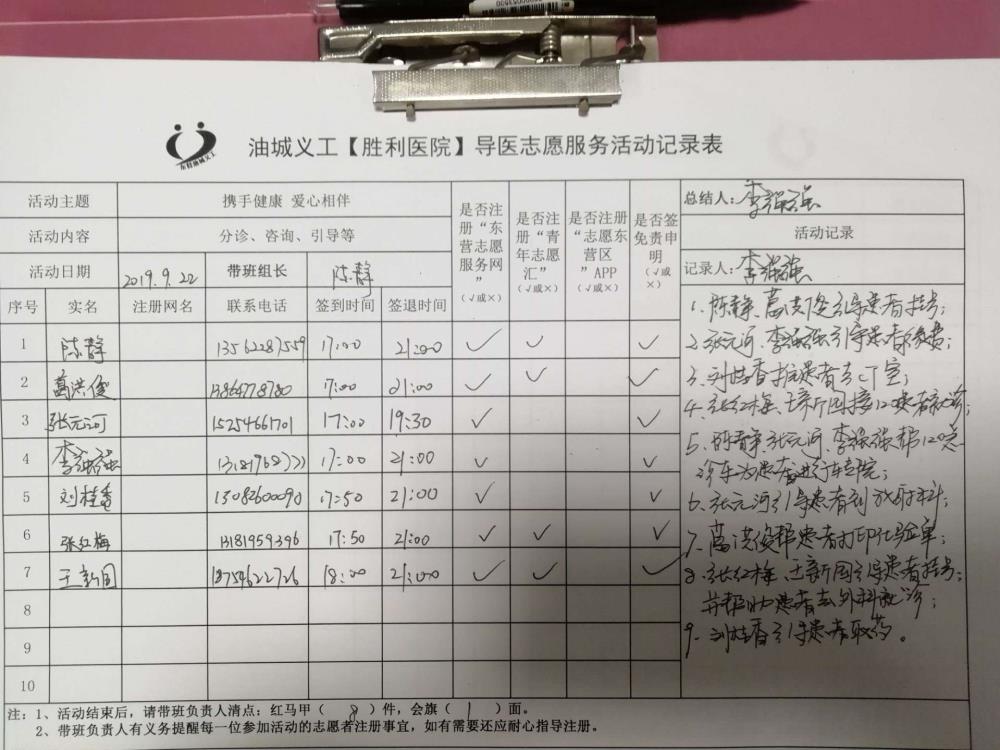 东营油城义工
油城义工【胜利医院】导医志愿服务活动记录表
活动主题 携手健康 爱心相伴 是否注册“东营志愿服务网”（√或×） 是否注册“青年志愿汇”（√或×） 是否注册“志愿东营区”APP（√或×） 是否签免责申明（√或×） 总结人：李强强
活动内容 分诊、咨询、引导等 活动记录
活动日期 2019.9.22 带班组长 陈静 记录人：李强强
序号 实名 注册网名 联系电话 签到时间 签退时间
1 陈静 13562287559 17:00 21:00 √ √ √
2 葛洪俊 13864778780 17:00 21:00 √ √ √
3 张元河 15254661701 17:00 19:30 √ √
4 李强强 17:00 21:00 √ √
5 刘桂香 13082600090 17:50 21:00 √ √
6 张红梅 13181959396 17:50 21:00 √ √ √
7 王新国 18754622726 18:00 21:00 √ √ √
8
9
10
1、陈静、葛洪俊引导患者挂号；
2、张元河、李强强引导患者缴费；
3、刘桂香推患者去CT室；
4、张红梅、王新国接120患者就诊；
5、陈静、张元河、李强强帮120急
诊车为患者进行转院；
6、张元河引导患者到放射科；
7、葛洪俊帮患者打印化验单；
8、张红梅、王新国引导患者挂号；
并帮助患者去外科就诊；
9、刘桂香引导患者取药。
注：1、活动结束后，请带班负责人清点：红马甲（8）件，会旗（1）面。
2、带班负责人有义务提醒每一位参加活动的志愿者注册事宜，如有需要还应耐心指导注册。